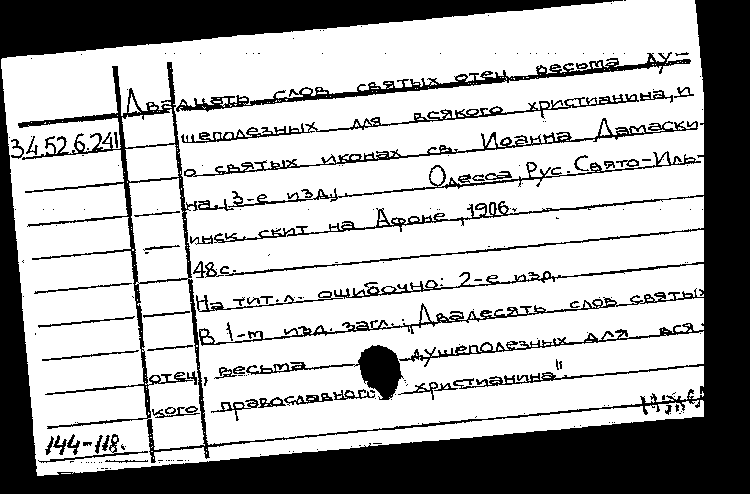 Двадцать слов святых отец весьма ду-
34.52.6.241
шеполезных для всякого христианина, и
о святых иконах св. Иоанна Дамаски-
на. [3-е изд.]. Одесса, Рус. Свято-Иль-
инск. скит на Афоне, 1906.
48с.
На тит.л. ошибочно: 2-е изд.
В 1-м изд. загл.: "Двадесять слов святых
отец, весьма душеполезных для вся-
кого православного христианина".
144-118.